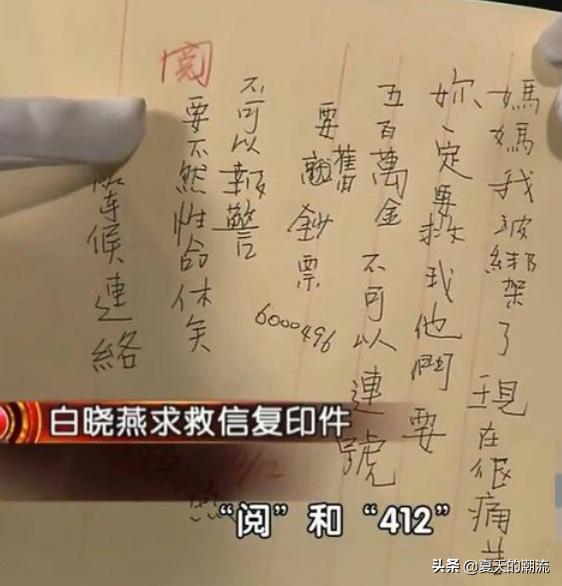 媽媽我被綁架了現在很痛苦
妳一定要救我他們要
五百萬金 不可以連號
要舊鈔票
6000496
不可以報警
要不然性命休矣
閱
候連絡
白晓燕求救信复印件
“阅”和“412”
头条 @夏天的潮流